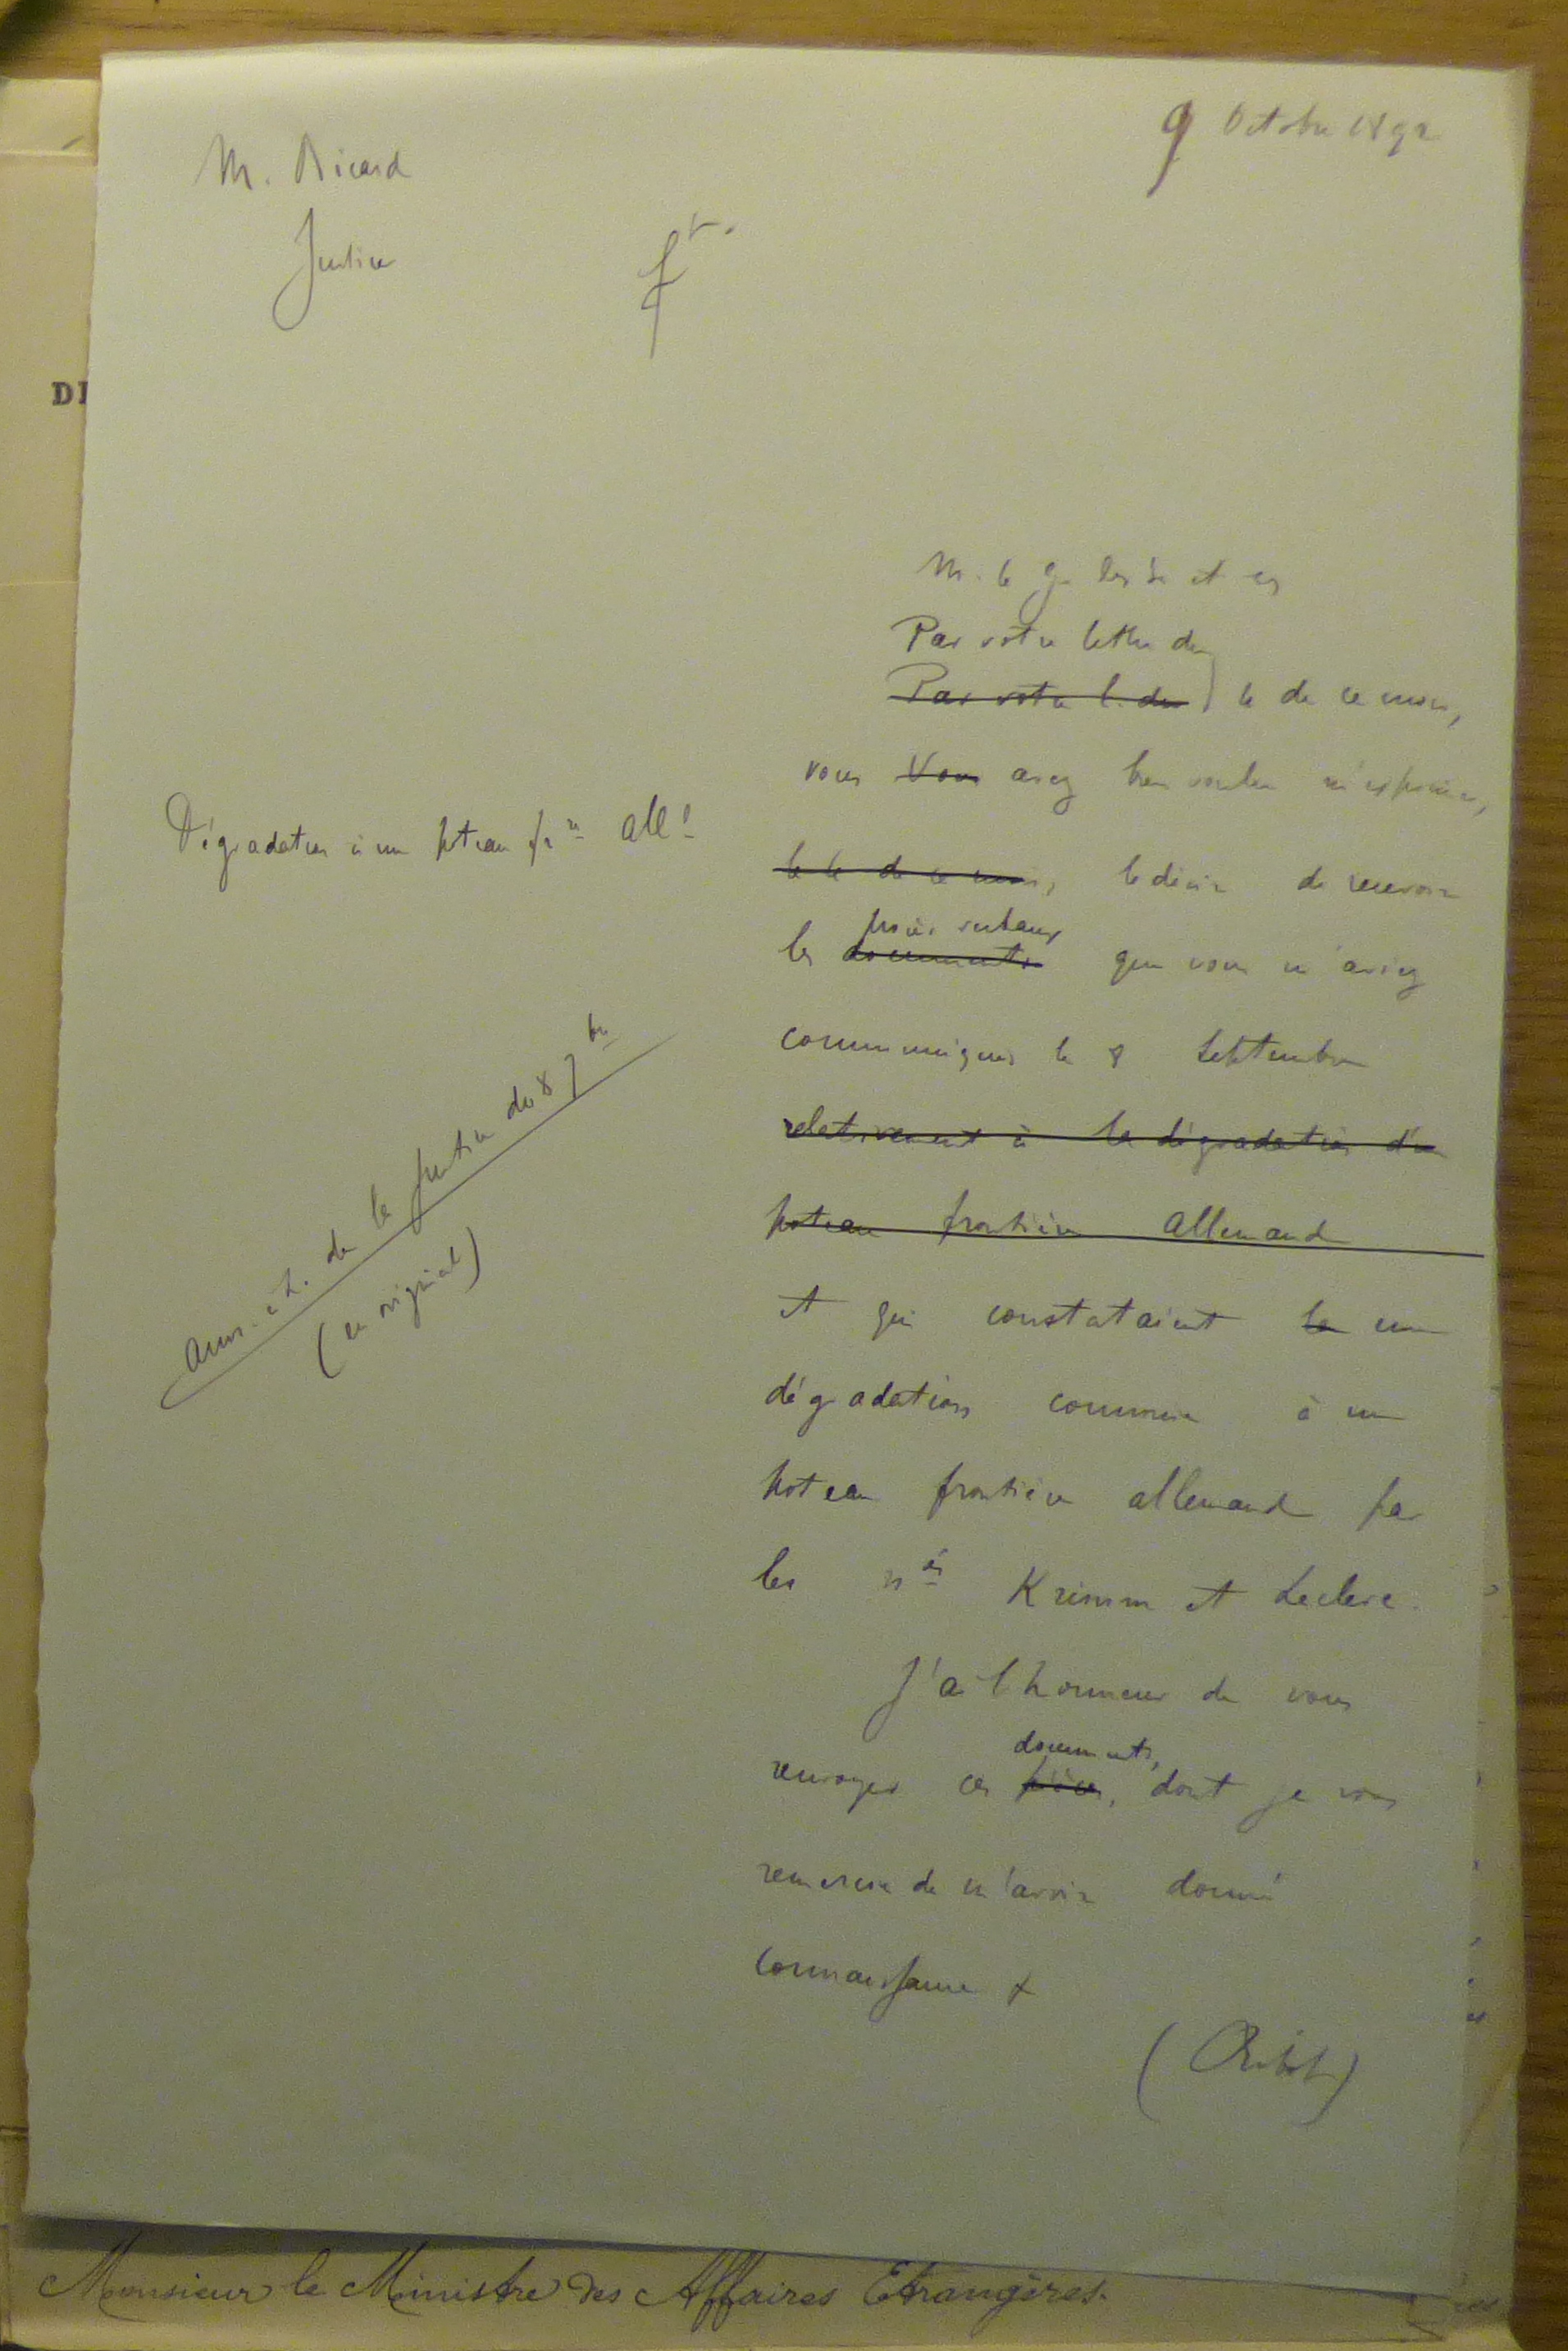 9 Octobre 1892
M. Ricard
Justice
DE
M. le g. des Sc. et ch
Par votre lettre du
Par votre l. du le de ce mois,
vous Vous avez bien voulu m'exprimer,
Dégradation à un poteau fre all.d
le le de ce mois, le désir de recevoir
procès verbaux
les documents que vous m'aviez
communiqués le 8 Septembre
relativement à la dégradation d'un
poteau frontière allemand
ann. à L. de la Justice du 8 7bre
(en original)
et qui constataient la une
dégradation commise à un
poteau frontière allemand par
les nés Krimm et Leclerc.
J'ai l'honneur de vous
documents,
renvoyer ces pièces, dont je vous
remercie de m'avoir donné
connaissance
(Ribot)
Monsieur le Ministre des Affaires Etrangères.